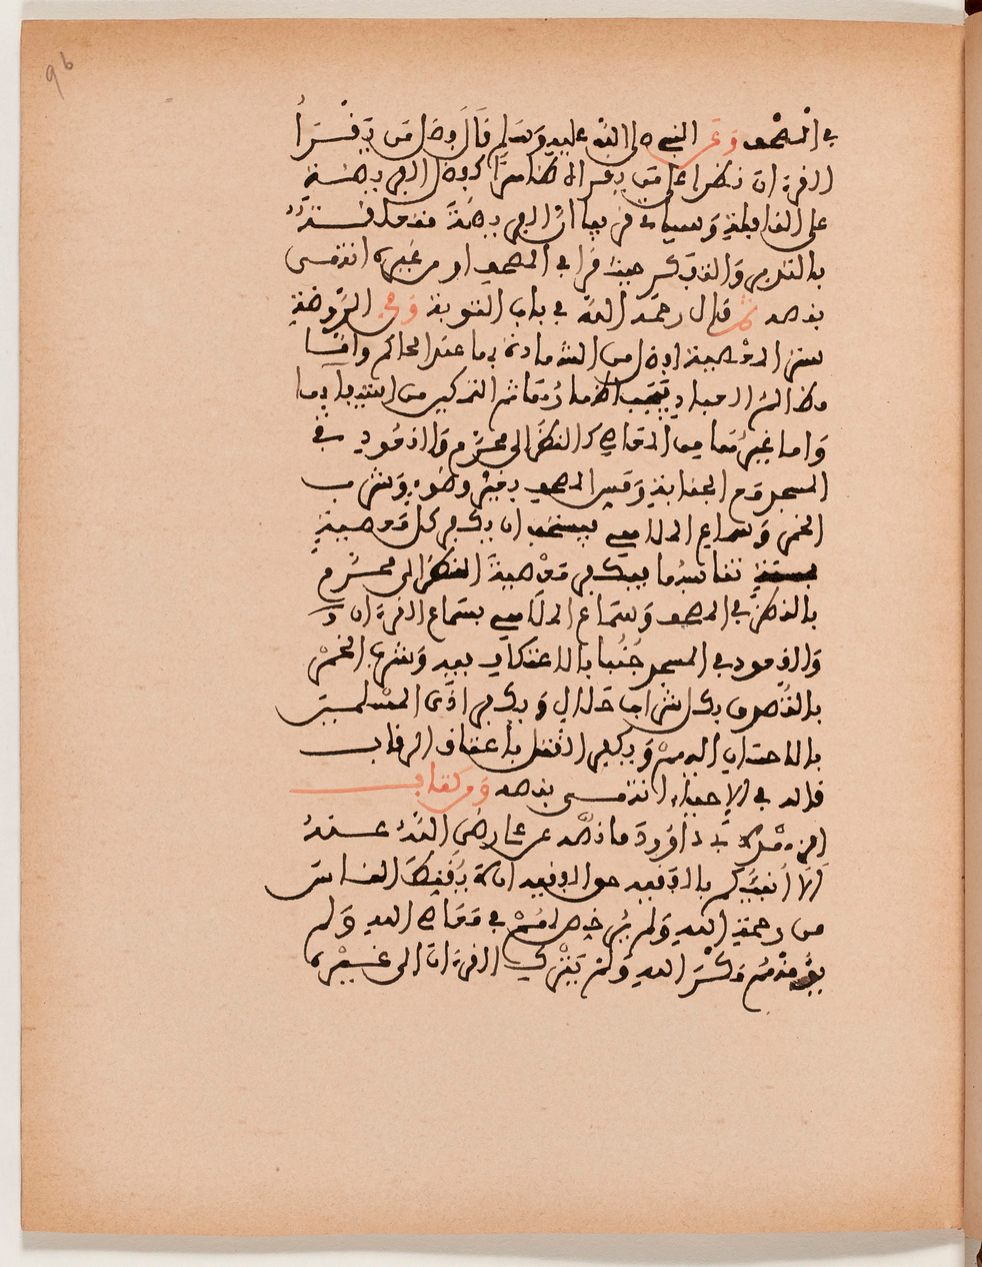 96
في المصحف وَعَن النبي صلى الله عليه وَسلم قَالَ وفضل مَن يَقْرَأُ
القرءان نظرا على مَن يقرأه ظاهرا كفضل الفريضة
على النافلة وَسياتي قريبا ان الفريضة
بالتلاوة وَالتذكر حيث قرأ في المصحف او من غيره انتهى
بنصه ثم قال رحمه الله في باب التوبة وَفي الروضة
ستر المعصية افضل من الشهادة بها عند الحاكم وَامّا
مظالم العباد
وَاما غيرها من المعاصي كالنظر الى محَرَّم وَالقعُود في
المسجد مع الجنابة وَمس المصحف بغير وضوءٍ وَشرب
الخمر وَسماع الملاهي فيستحب ان يكفر كل مَعصيةٍ
بحسنة تناسبها فيكفر مَعْصيةَ النظر الى محَرَّم
بالنظر في المصحف وَسماع الملَاهي بسَماع القرءان
وَالقعود في المسجد جُنُبا بالاعتكاف فيه وَشرب الخمْر
بالتصدق بكل شراب حَلال وَيكفر اذَى المسْلمين
بالاحسان اليهمْ وَيكفر القتل باعتاق الرقاب
قاله في الإحياء انتهى بنصه وَمن كتاب
الزهْد لأبي دَاوُودَ ما نصُّه عن علي رضي اللهُ عنهُ
أَلَا أُنَبِّئُكم بالفَقيه حق الفقيه مَن لم يُقَنِّطِ الناسَ
من رحمةِ الله وَلم يُرخص لهُمْ في مَعَاصي الله وَلم
يُؤَمِّنْهُم مَكْرَ الله وَلم يَتْرُكِ القرءَانَ الى غَيْرِهِ